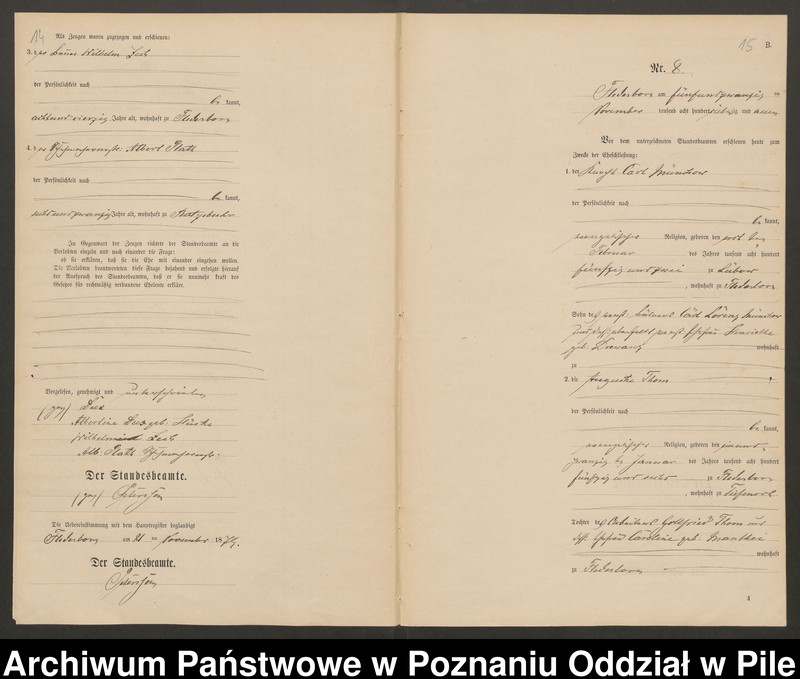 14
Als Zeugen waren zugezogen und erschienen:
3. der Bauer Wilhelm
der Persönlichkeit nach
be kannt,
achtundvierzig Jahre alt, wohnhaft zu Flederborn
4. der Albert Plath
der Persönlichkeit nach
be kannt,
sechsundzwanzig Jahre alt, wohnhaft zu
In Gegenwart der Zeugen richtete der Standesbeamte an die
Verlobten einzeln und nach einander die Frage:
ob sie erklären, daß sie die Ehe mit einander eingehen wollen.
Die Verlobten beantworteten diese Frage bejahend und erfolgte hierauf
der Ausspruch des Standesbeamten, daß er sie nunmehr kraft des
Gesetzes für rechtmäßig verbundene Eheleute erkläre.
Vorgelesen, genehmigt und unterschrieben
(gez)
Albertine geb:
Wilhelm
Alb. Plath
Der Standesbeamte.
(gez)
Die Uebereinstimmung mit dem Hauptregister beglaubigt
Flederborn am 21 ten November 187
Der Standesbeamte.
15
B.
Nr. 8.
Flederborn am fünfundzwanzig ten
November tausend acht hundert siebenzig und
Vor dem unterzeichneten Standesbeamten erschienen heute zum
Zwecke der Eheschließung:
1. der Knecht Carl Münchow
der Persönlichkeit nach
be kannt,
evangelischer Religion, geboren den
Februar des Jahres tausend acht hundert
fünfzig und zwei zu Lübow
, wohnhaft zu Flederborn
Sohn des Carl Lorenz Münchow
und Henriette
geb: wohnhaft
zu
2. die Auguste Thom
der Persönlichkeit nach
be kannt,
evangelischer Religion, geboren den
zwanzig ten Januar des Jahres tausend acht hundert
fünfzig und sechs zu Flederborn
, wohnhaft zu
Tochter des Arbeiters Gottfried Thom und
dess. Ehefrau Caroline geb: Manthei
wohnhaft
zu Flederborn
4
Archiwum Państwowe w Poznaniu Oddział w Pile